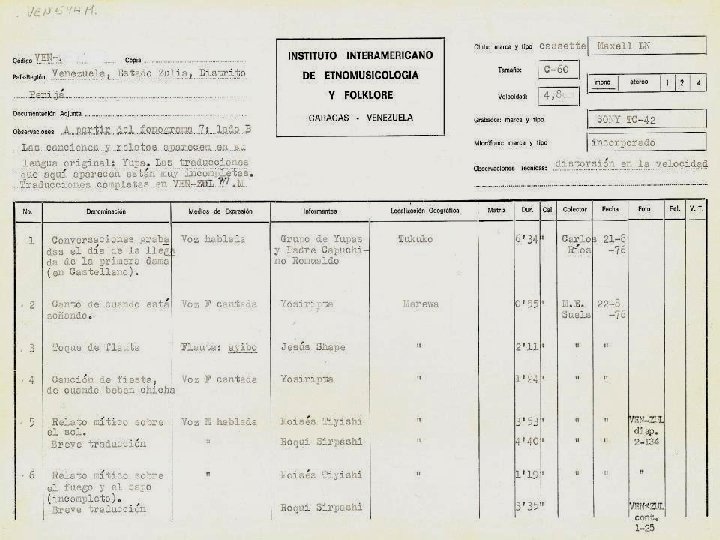 VEN 574 M.
INSTITUTO INTERAMERICANO
DE ETNOMUSICOLOGIA
Y FOLKLORE
CARACAS - VENEZUELA
Código VEN- Copia
País-Región Venezuela, Estado Zulia, Distrito
Perijá
Documentación Adjunta
Observaciones A partir del fonograma 7: lado B
Las canciones y relatos aparecen en su
lengua original: Yupa. Las traducciones
que aquí aparecen están muy incompletas.
Traducciones completas en VEN-ZUL .M
Cinta: marca y tipo cassette Maxell LN
Tamaño: C-60
Velocidad: 4,8
mono stereo 1 2 4
Grabador: marca y tipo SONY TC-42
Micrófono: marca y tipo incorporado
Observaciones técnicas: distorsión en la velocidad
No. Denominación Medios de Expresión Informantes Localización Geográfica Matriz Dur. Cal Colector Fecha Foto Pel. V. T.
1 Conversaciones graba Voz hablada Grupo de Yupas Tukuko 6'34" Carlos 21-6
das el día de la llega y Padre Capuchi- Ríos -76
da de la primera dama no Romualdo
(en Castellano).
2 Canto de cuando está Voz F cantada Yosiripta Marewa 0'55" M.E. 22-8
soñando. Suels -76
3 Toque de flauta Flauta: Jesús Shape " 2'11" " "
4 Canción de fiesta, Voz F cantada Yosiripta " " "
de cuando beben chicha
5 Relato mítico sobre Voz M hablada Moisés Tiyishi " 3'53" " " VEN-ZUL
el sol. diap.
Breve traducción " Roqui Sirpashi 4'40" " " 2-134
6 Relato mítico sobre " Moisés Tiyishi " 1'19" " " "
el fuego y el sapo
(incompleto). VEN-ZUL
Breve traducción Roqui Sirpashi 3'35" cont.
1-25